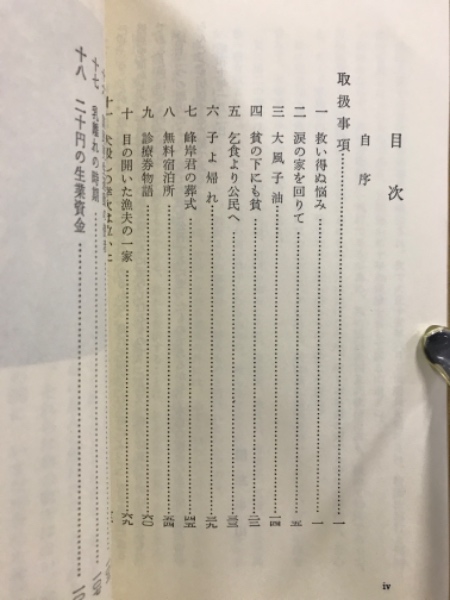 目次
自序
取扱事項……一
一 救い得ぬ悩み……一
二 涙の家を回りて……五
三 大風子油……一四
四 貧の下にも貧……二三
五 乞食より公民へ……三三
六 子よ帰れ……三九
七 峰岸君の葬式……四五
八 無料宿泊所……五四
九 診療券物語……六〇
十 目の開いた漁夫の一家……六九
十七 乳離れの時期
十八 二十円の生業資金
iv